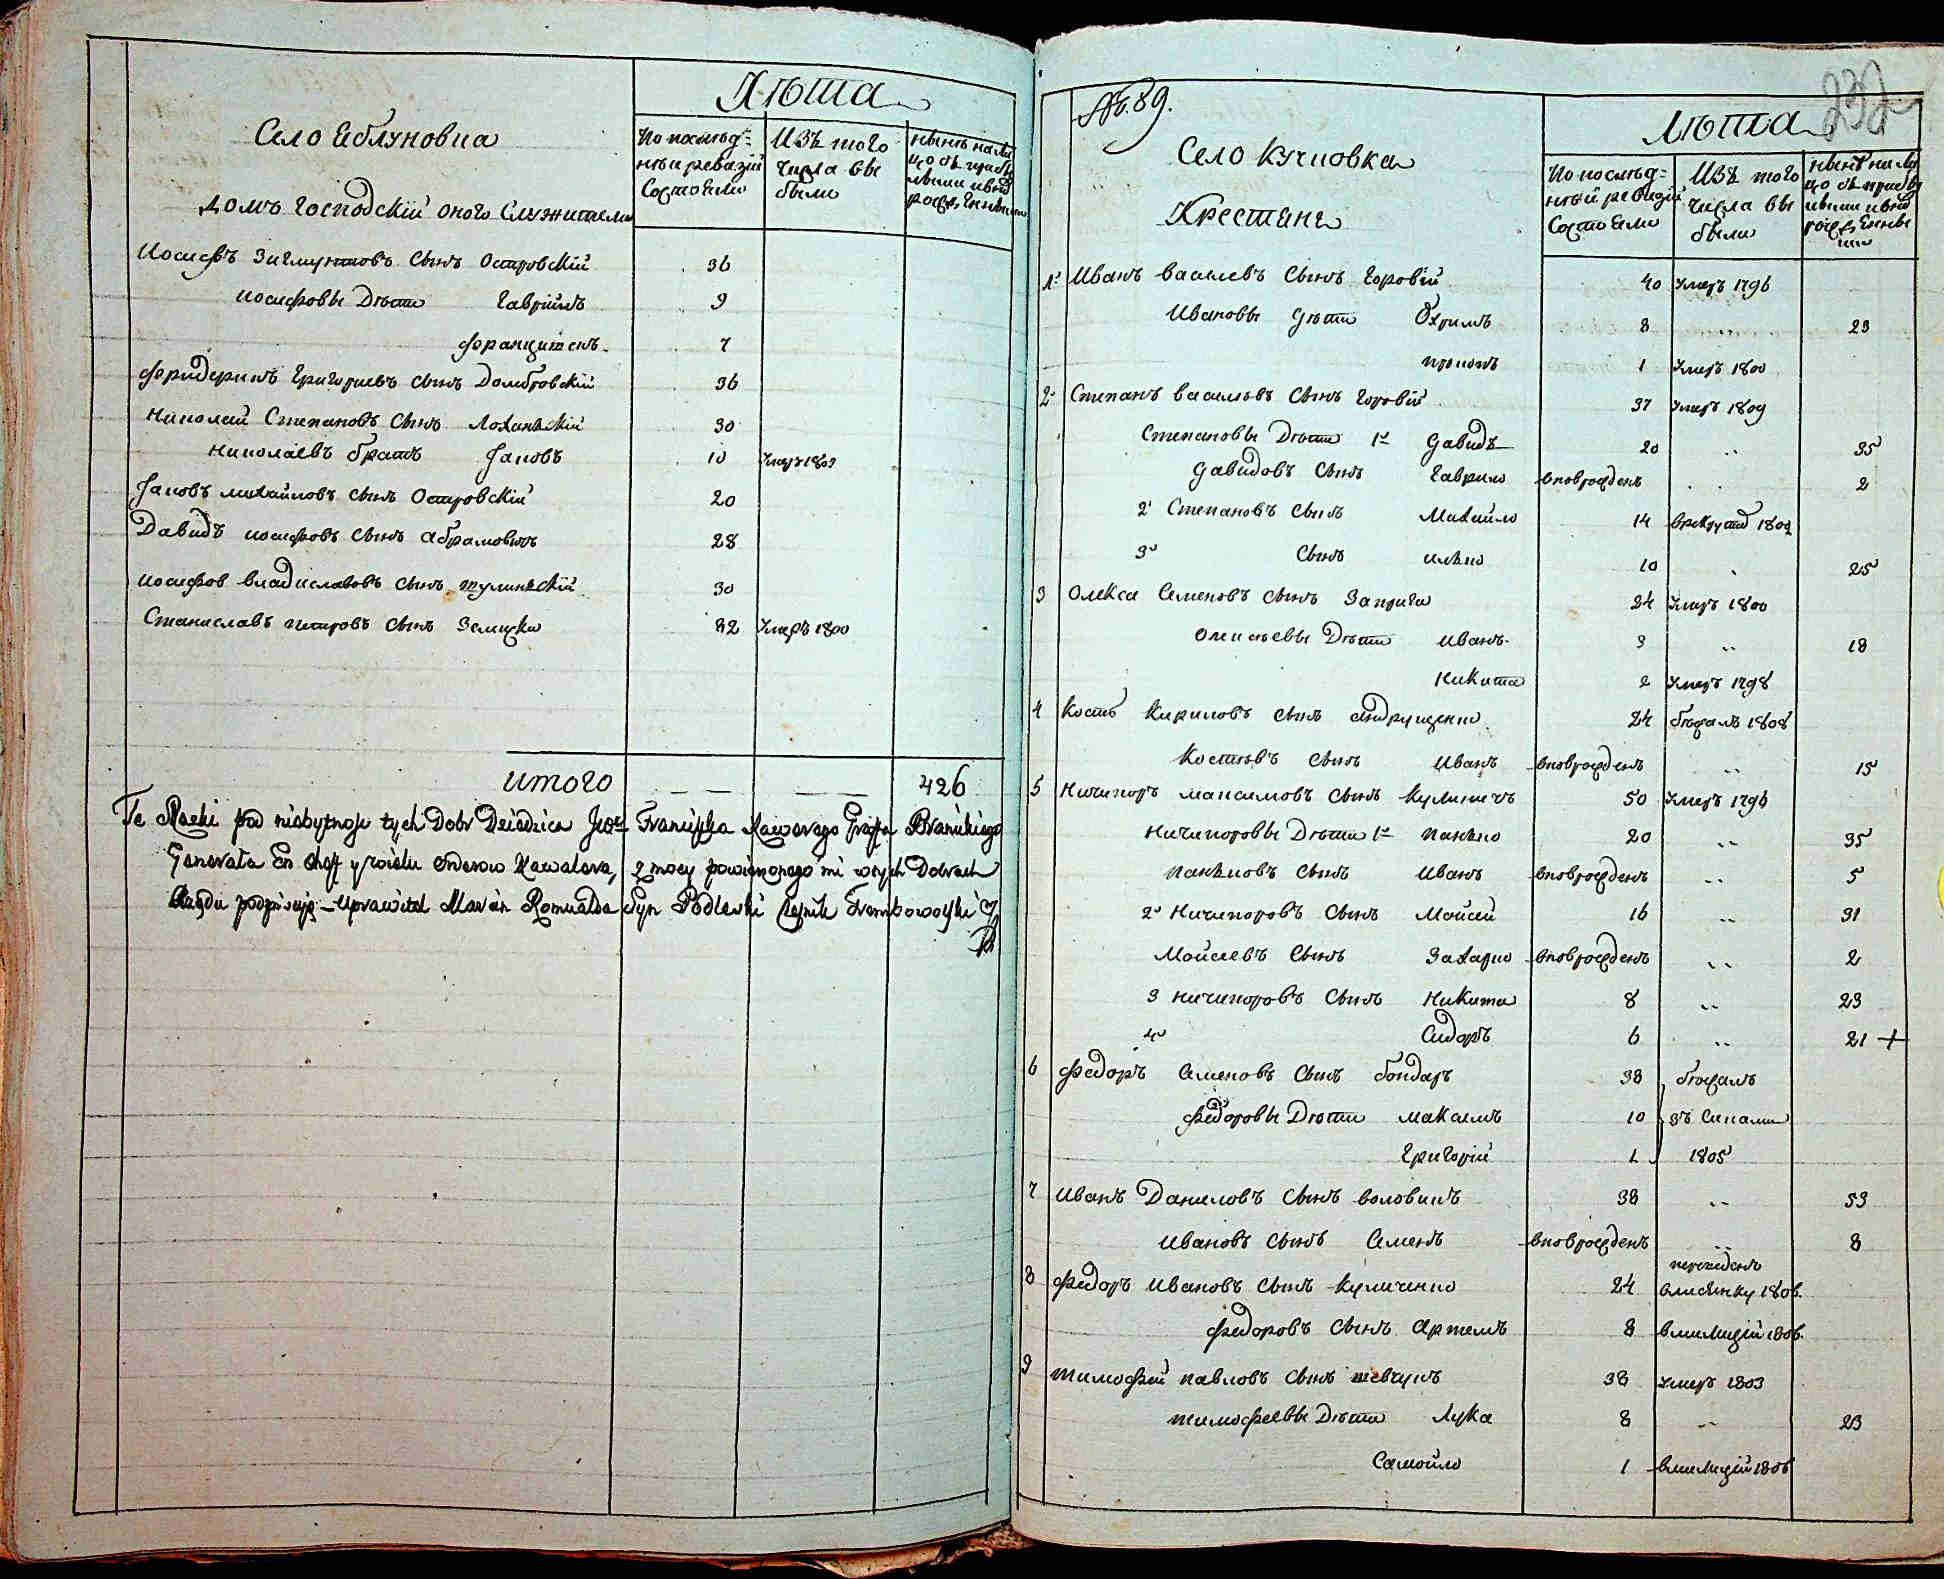 Лѣта
Село Яблуновка
По послѣд-
нѣй ревизіи
Состояли
Изъ того
числа вы
были
Домъ Господскій оного Служители
Иосифъ Зигмунтовъ Сынъ Островскій 36
Иосифовы Дѣти Гаврiилъ 9
Францишекъ 7
Фридерикъ Григориевъ Сынъ Домбровскій 36
Николай Степановъ Сынъ Лоханскій 30
Николаевъ братъ Яковъ 10 Умеръ 1809
Яковъ Михайловъ Сынъ Островскій 20
Давидъ Иосифовъ Сынъ Абрамовичъ 28
Иосифов Владиславовъ Сынъ Тулинскій 30
Станиславъ Петровъ Сынъ 32 Умеръ 1800
Итого — — 426
Te Skazki po niebytnosci tych Dobr Dziedzica Franciszka Xawerego Grafa Branickiego
Generała En Cheff y wielu Orderow Kawalera, z mocy powierzonego mi w tych Dobrach
Urzędu podpisuję – Uprawitel Marcin Romualda Syn Podlewski
№. 89.
232
Лѣта
Село Кучковка
По послѣд-
нѣй ревизіи
Состояли
Изъ того
числа вы
были
Крестяне
1 Иванъ Василевъ Сынъ Горовій 40 Умеръ 1796
Ивановы Дѣти Охримъ 8 .. 23
Прокопъ 1 Умеръ 1800
2 Степанъ Василовъ Сынъ Горовій 37 Умеръ 1809
Степановы Дѣти 1й Давидъ 20 .. 35
Давидовъ Сынъ Гаврило вновьрожденъ .. 2
2 Степановъ Сынъ Михайло 14 врекруты 1802
3 Сынъ Илько 10 . 25
3 Олекса Семеновъ Сынъ Заприга 24 Умеръ 1800
Олексѣевы Дѣти Иванъ 3 .. 18
Никита 2 Умеръ 1798
4 Кость Кириловъ Сынъ Андрущенко 24 бѣжалъ 1808
Костювъ Сынъ Иванъ вновьрожденъ .. 15
5 Ничипоръ Максимовъ Сынъ Кулиничъ 50 Умеръ 1796
Ничипоровы Дѣти 1й Панько 20 .. 35
Паньковъ Сынъ Иванъ вновьрожденъ .. 5
2 Ничипоровъ Сынъ Мойсей 16 .. 31
Мойсеевъ Сынъ Захарко вновьрожденъ .. 2
3 Ничипоровъ Сынъ Никита 8 .. 23
4 Сидоръ 6 .. 21 +
6 Федоръ Семеновъ Сынъ бондаръ 38 бѣжалъ
Федоровы Дѣти Максимъ 10 зъ Синами
Григорій 1 1805
7 Иванъ Даниловъ Сынъ Воловикъ 38 .. 53
Ивановъ Сынъ Семенъ вновьрожденъ .. 8
переведенъ
8 Федоръ Ивановъ Сынъ Куличенко 24 влисянку 1806.
Федоровъ Сынъ Артемъ 8 вмилицій 1806.
9 Тимофей Павловъ Сынъ Шевчукъ 38 Умеръ 1803
Тимофеевы Дѣти Лука 8 .. 23
Самойло 1 вмилицій 1806